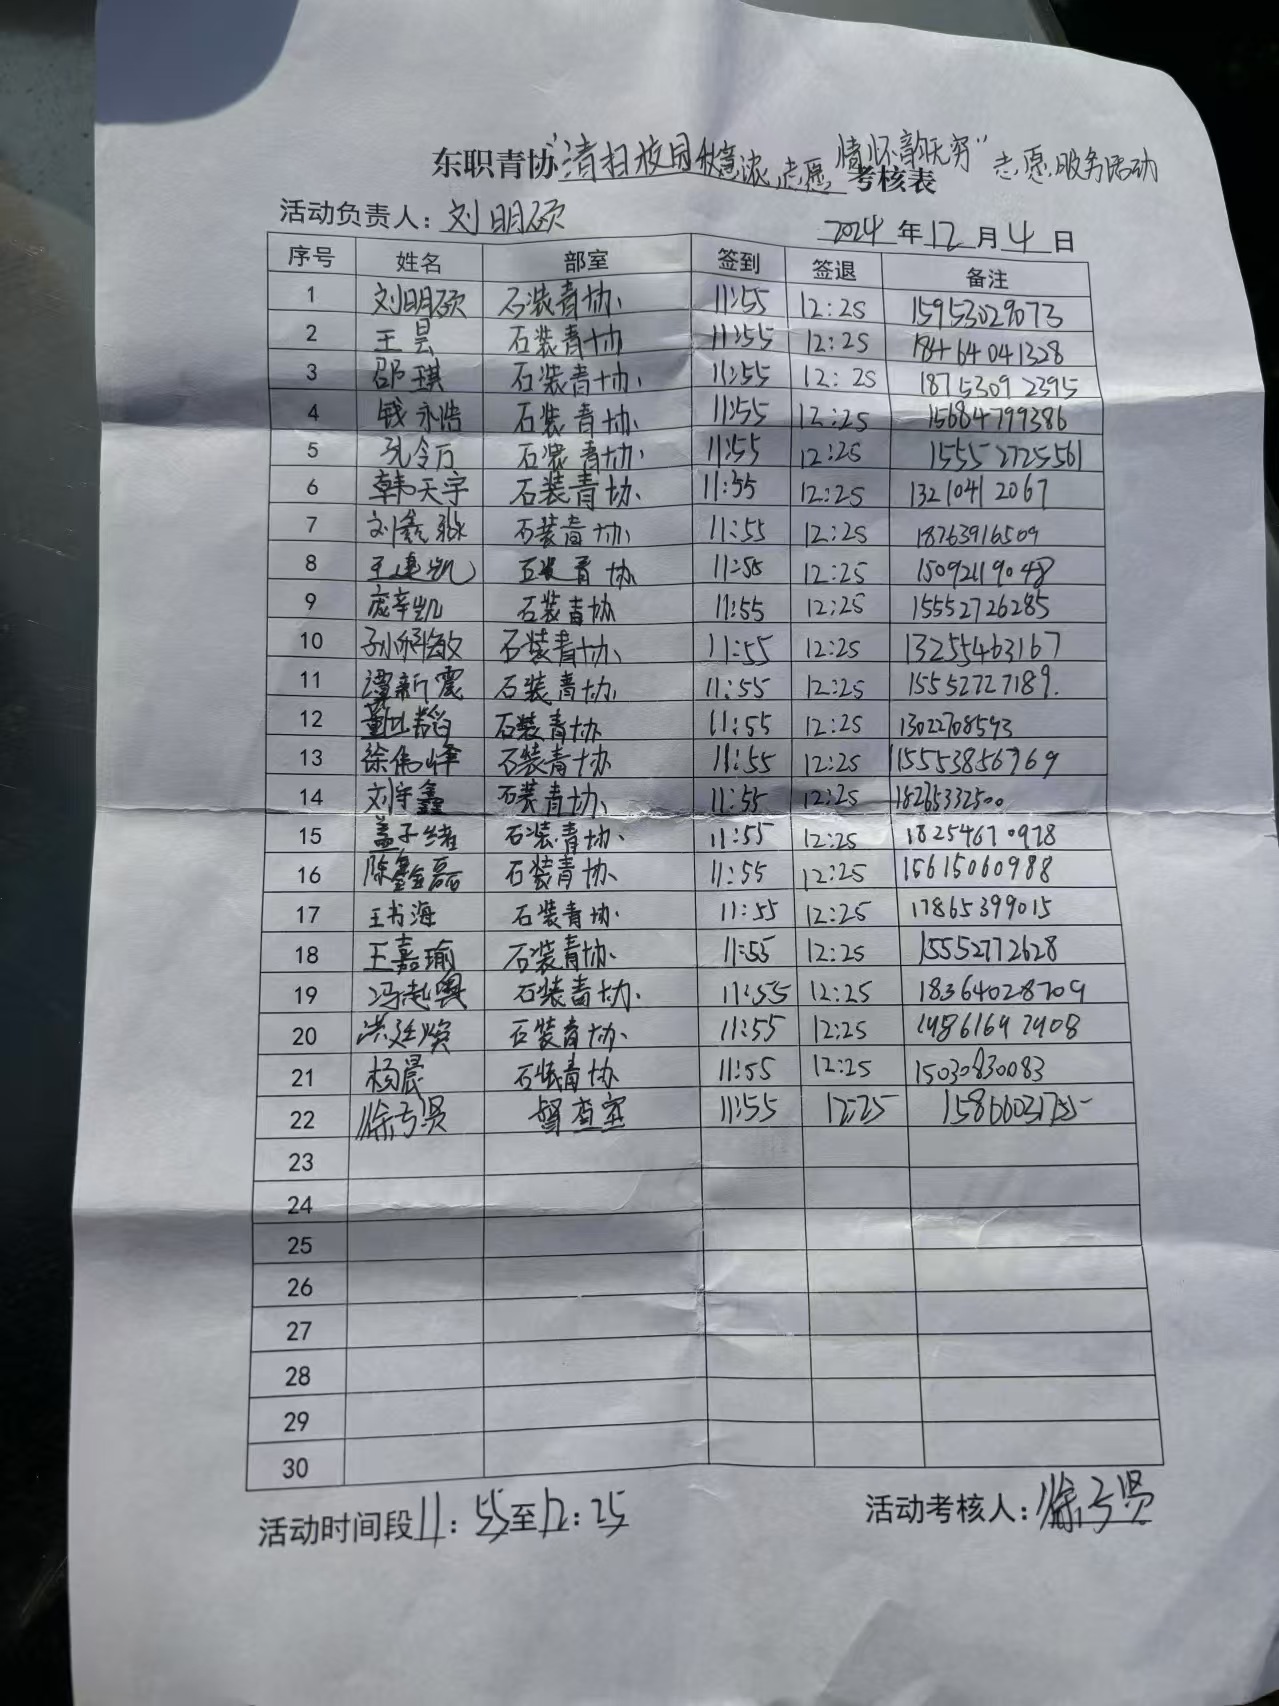 东职青协"清扫校园秋意浓,志愿情怀韵无穷"志愿服务活动
考核表
活动负责人：刘明硕 2024年12月4日
序号 姓名 部室 签到 签退 备注
1 刘明硕 石装青协 11:55 12:25 15953029073
2 王昊 石装青协 11:55 12:25 18464041328
3 邵琪 石装青协 11:55 12:25 18753092395
4 钱永浩 石装青协 11:55 12:25 15684799386
5 孔令万 石装青协 11:55 12:25 15552725561
6 韩天宇 石装青协 11:55 12:25 13210412067
7 石装青协 11:55 12:25 18763916509
8 王建凯 石装青协 11:55 12:25 15092119048
9 庞辛凯 石装青协 11:55 12:25 15552726285
10 石装青协 11:55 12:25 13255463167
11 谭新震 石装青协 11:55 12:25 15552727189
12 石装青协 11:55 12:25 13022708593
13 徐伟峰 石装青协 11:55 12:25 15553856969
14 刘宇鑫 石装青协 11:55 12:25 18265332500
15 盖子绪 石装青协 11:55 12:25 18254670978
16 陈鑫磊 石装青协 11:55 12:25 15615060988
17 王书海 石装青协 11:55 12:25 17865399015
18 王嘉瑜 石装青协 11:55 12:25 15552772628
19 冯起奥 石装青协 11:55 12:25 18364028709
20 洪廷焕 石装青协 11:55 12:25
21 杨晨 石装青协 11:55 12:25 15030830083
22 督查室 11:55 12:25
23
24
25
26
27
28
29
30
活动时间段11：55至12：25 活动考核人：